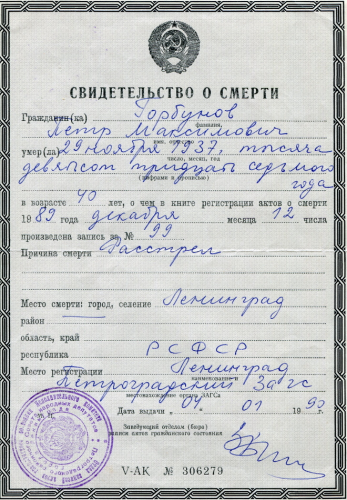 СВИДЕТЕЛЬСТВО О СМЕРТИ
Гражданин(ка) Горбунов
фамилия,
Петр Максимович
имя, отчество
умер(ла) 29 ноября 1937, тысяча
число, месяц, год
девятьсот тридцать седьмого
(цифрами и прописью)
года
в возрасте 40 лет, о чем в книге регистрации актов о смерти
1989 года декабря месяца 12 числа
произведена запись за № 99
Причина смерти Расстрел
Место смерти: город, селение Ленинград
район
область, край
республика РСФСР
Место регистрации Ленинград
наименование и
Петроградский Загс
местонахождение органа ЗАГСа
Дата выдачи 04 01 1990
Заведующий отделом (бюро)
записи актов гражданского состояния
V-АК № 306279